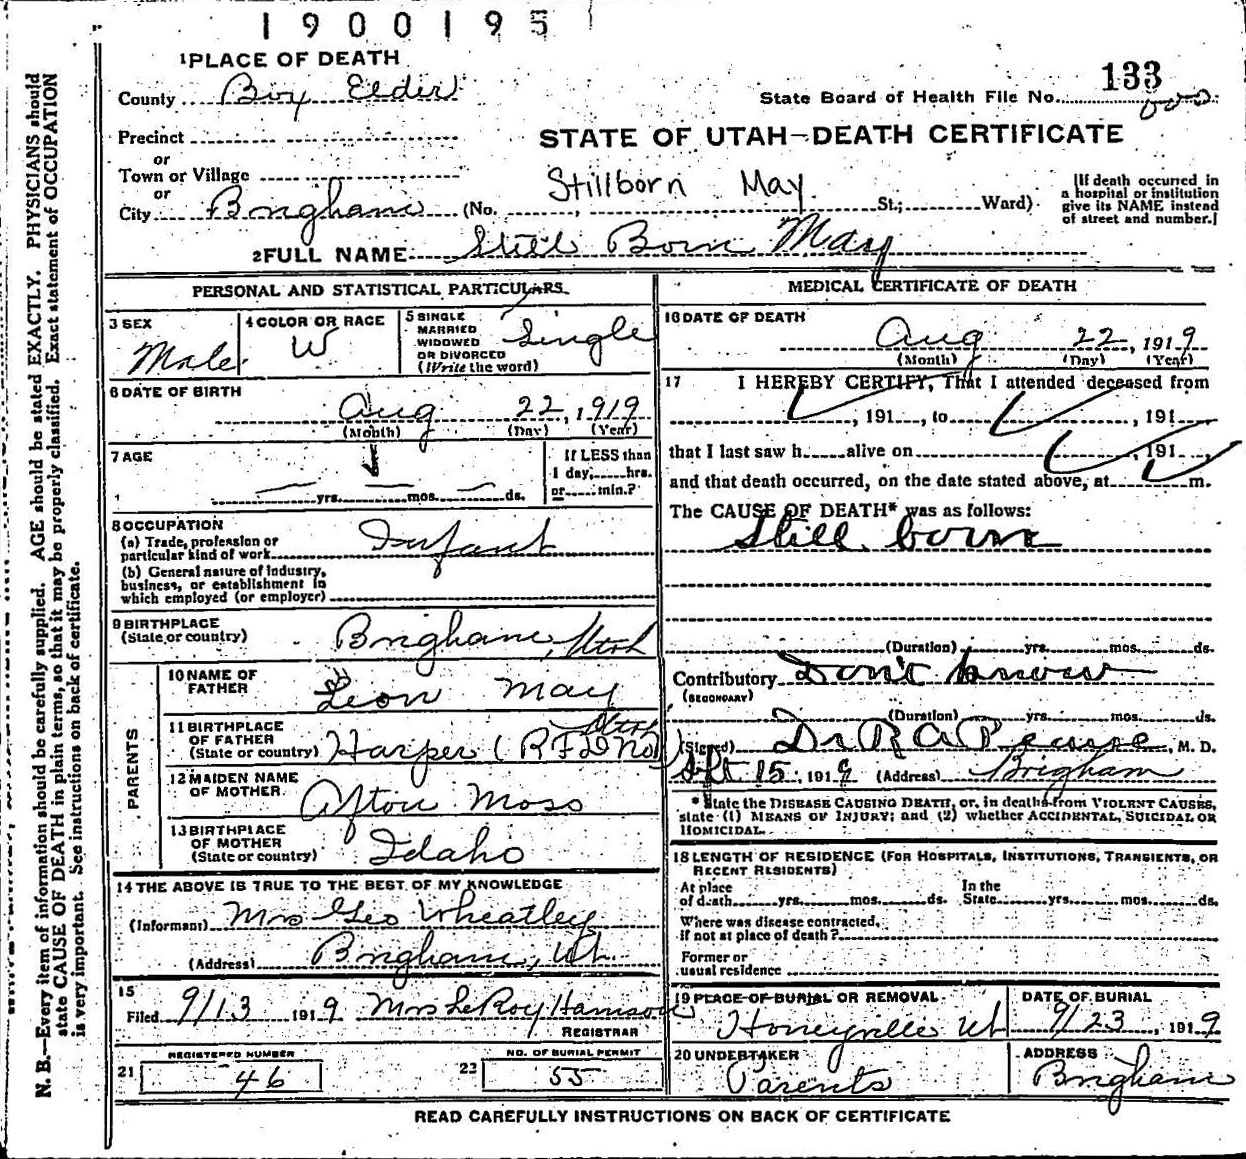 1900195
1 PLACE OF DEATH
County Box Elder
State Board of Health File No. 133
Precinct
or
Town or Village
or
City Brigham (No. St.; Ward)
STATE OF UTAH—DEATH CERTIFICATE
Stillborn May
[If death occurred in
a hospital or institution
give its NAME instead
of street and number.]
2 FULL NAME Still Born May
PERSONAL AND STATISTICAL PARTICULARS
3 SEX
Male
4 COLOR OR RACE
W
5 SINGLE
MARRIED
WIDOWED
OR DIVORCED
(Write the word)
Single
6 DATE OF BIRTH
Aug 22, 1919
(Month) (Day) (Year)
7 AGE
yrs. mos. ds.
If LESS than
1 day, hrs.
or min.?
8 OCCUPATION
(a) Trade, profession or
particular kind of work Infant
(b) General nature of industry,
business, or establishment in
which employed (or employer)
9 BIRTHPLACE
(State or country) Brigham, Utah
PARENTS
10 NAME OF
FATHER Leon May
11 BIRTHPLACE
OF FATHER
(State or country) Harper (RFD No Utah
12 MAIDEN NAME
OF MOTHER Afton Moss
13 BIRTHPLACE
OF MOTHER
(State or country) Idaho
14 THE ABOVE IS TRUE TO THE BEST OF MY KNOWLEDGE
(Informant) Mrs Geo Wheatley
(Address) Brigham, Ut.
15
Filed 9/13 1919 Mrs LeRoy Hamson
REGISTRAR
21 REGISTERED NUMBER
46
22 NO. OF BURIAL PERMIT
55
MEDICAL CERTIFICATE OF DEATH
16 DATE OF DEATH
Aug 22, 1919
(Month) (Day) (Year)
17 I HEREBY CERTIFY, That I attended deceased from
, 191 , to , 191
that I last saw h alive on , 191 ,
and that death occurred, on the date stated above, at m.
The CAUSE OF DEATH* was as follows:
Still born
(Duration) yrs. mos. ds.
Contributory Don't know
(SECONDARY)
(Duration) yrs. mos. ds.
(Signed) Dr R A Pearse, M. D.
Sept 15 1919 (Address) Brigham
* State the DISEASE CAUSING DEATH, or, in deaths from VIOLENT CAUSES,
state (1) MEANS OF INJURY; and (2) whether ACCIDENTAL, SUICIDAL OR
HOMICIDAL.
18 LENGTH OF RESIDENCE (FOR HOSPITALS, INSTITUTIONS, TRANSIENTS, OR
RECENT RESIDENTS)
At place
of death yrs. mos. ds.
In the
State yrs. mos. ds.
Where was disease contracted,
if not at place of death?
Former or
usual residence
19 PLACE OF BURIAL OR REMOVAL
Honeyville Ut
DATE OF BURIAL
9/23, 1919
20 UNDERTAKER
Parents
ADDRESS
Brigham
READ CAREFULLY INSTRUCTIONS ON BACK OF CERTIFICATE
N. B.—Every item of information should be carefully supplied. AGE should be stated EXACTLY. PHYSICIANS should
state CAUSE OF DEATH in plain terms, so that it may be properly classified. Exact statement of OCCUPATION
is very important. See instructions on back of certificate.